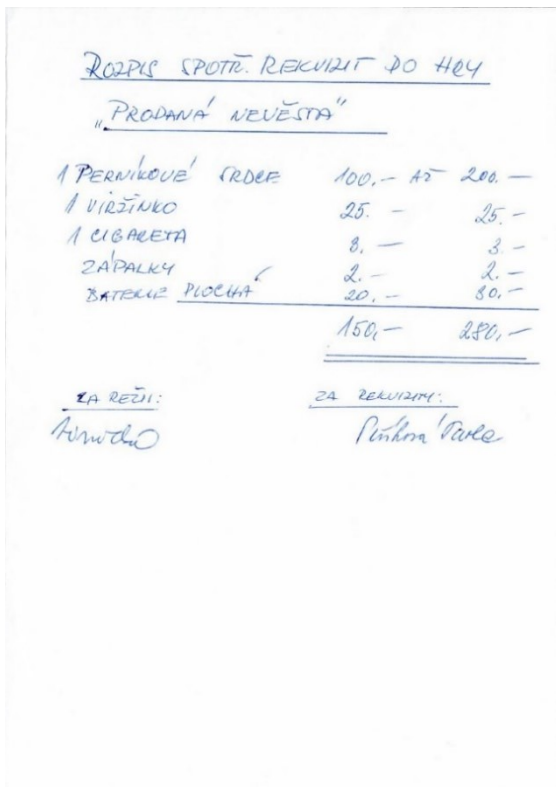 ROZPIS SPOTŘ. REKVIZIT DO HRY
„PRODANÁ NEVĚSTA"
1 PERNÍKOVÉ SRDCE 100,- AŽ 200.-
1 VIRŽÍNKO 25.- 25.-
1 CIGARETA 3.- 3.-
ZÁPALKY 2.- 2.-
BATERIE PLOCHÁ 20,- 30.-
150,- 280,-
ZA REŽII: ZA REKVIZITY: